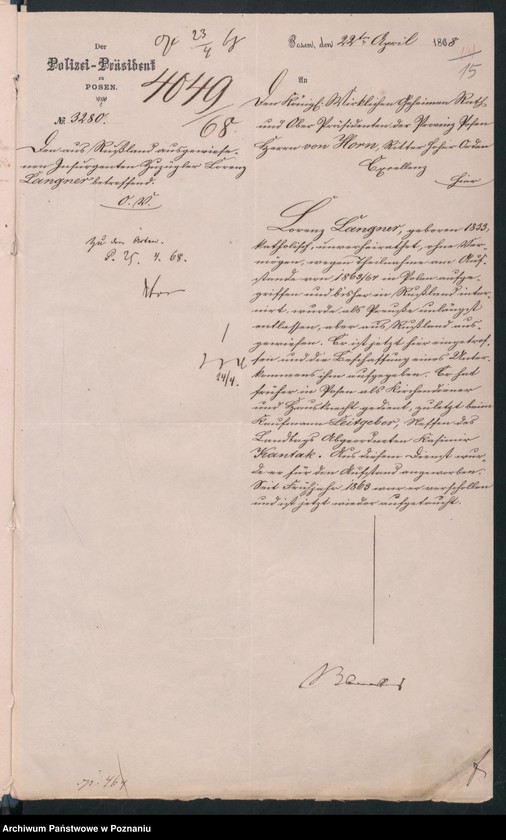 Der
Polizei-Präsident
zu
POSEN.
№ 3280.
Den aus Rußland ausgewiese-
nen Insurgenten Zuzügler Lorenz
Langner betreffend.
4049
68
Posen, den 22ten April 1868
15
An
Den Königl. Wirklichen Geheimen Rath
und Ober Präsidenten der Provinz Posen
Herrn von Horn, Ritter hoher Orden
Excellenz
hier
Zu den Acten.
P. 25. 4. 68.
24/4.
Lorenz Langner, geboren 1833,
katholisch, unverheirathet, ohne Ver-
mögen, wegen Theilnahme am Auf-
stande von 1863/64 in Polen aufge-
griffen und bisher in Rußland inter-
nirt, wurde als Preuße unlängst
entlassen, aber aus Rußland aus-
gewiesen. Er ist jetzt hier eingetrof-
fen und die Beschaffung eines Unter-
kommens ihm aufgegeben. Er hat
früher in Posen als Kirchendiener
und Hausknecht gedient, zuletzt beim
Kaufmann Leitgeber, Neffen des
Landtags Abgeordneten Kasimir
Kantak. Aus diesem Dienst wur-
de er für den Aufstand angeworben.
Seit Frühjahr 1863 war er verschollen
und ist jetzt wieder aufgetaucht.
Archiwum Państwowe w Poznaniu